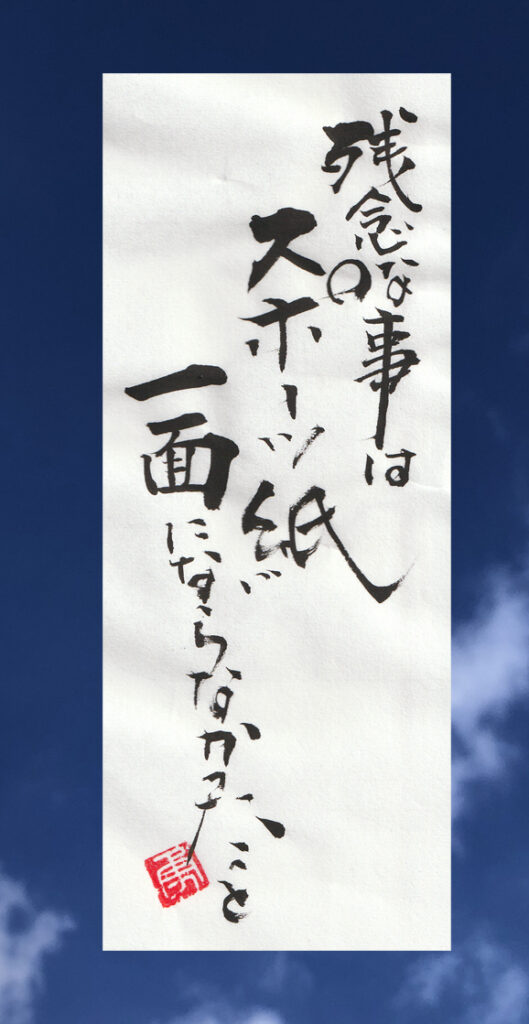 残念な事は
スポーツ紙
一面にならなかったこと